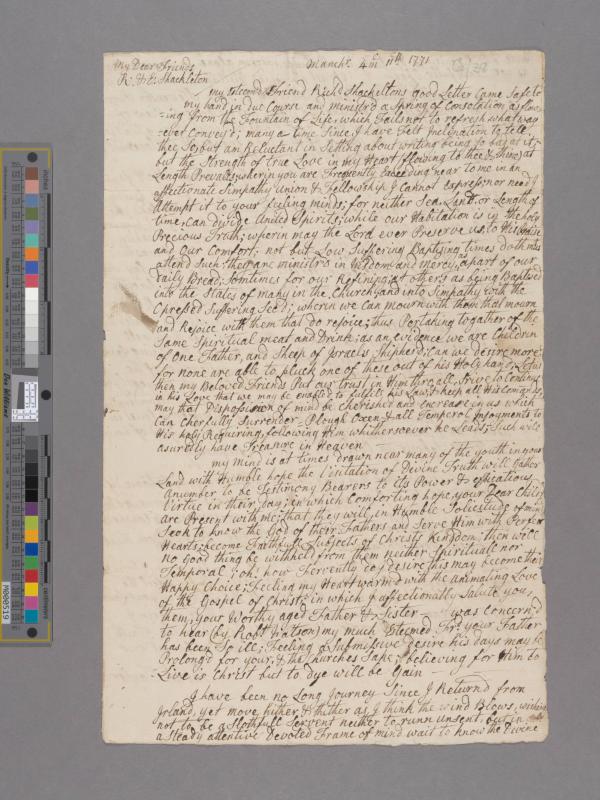 My Dear Friends
R: & E: Shackleton
March 4th 1771
my Second Friend Richd Shackeltons good Letter Came Safe to
my hand in due Course and ministr'd a Spring of Consolation as flow
=ing from the Fountain of Life, which Fails not to refresh what way
ever Convey'd; many a time Since I have Felt Inclenation to tell
thee So, but am Reluctant in Setting about writing being so bad at it;
but the Strength of true Love in my Heart flowing to thee & thine, at
Length Prevails; wherein you are Frequently Exceeding near to me in an
affectionate Simpathy union & Fellowship I Cannot express; nor need I
attempt it to your feeling minds; for neither Sea, Land, or Length of
time, Can divide United Spirits, while our Habitation is in the holy
Precious Truth; wherein may the Lord ever Preserve us, to His Praise
and Our Comfort; not but Low Suffering Baptising times doth
attend Such; their are ministr'd in Wisdom and mercy, as part of our
daily Bread; Somtimes for our Refining, at others as being Baptised
into the States of many in the Church, and into Simpathy with the
Opressed Suffering Seed; wherein we Can mourn with them that mourn
and Rejoice with them that do rejoice; thus Pertaking togather of the
Same Spiritual meat and Drink; as an evidence we are Children
of One Father, and Sheep of Israels Shipherd; Can we desire more
for none are able to pluck one of these out of his Holy hand; Let us
then my Beloved Friends Put our trust in Him
in his Love that we may be enabled to fulfill his Law & keep all His
may that Disposision of mind be cherished and encrease in us which
Can Cherfully Surrender - Plough Oxen & all Temporal Injoyments to
His holy Requiring, following Him whithersoever he Leads; Such will
asuredly have Treasure in Heaven
my mind is at times drawn near many of the youth in your
Land with Humble hope the Visitation of Divine Truth will Gather
a number to be Testimony Bearers to its Power & eficatious
Virtue in their day; in which Comforting hope, your Dear Childn
are Present with me; that they will in Humble Solicitude of mind
Seek to know the God of their Fathers and Serve Him with Perfect
Hearts; become Faithfull Subjects of Christs Kingdom; then will
no Good thing be withheld from them neither Spirituale nor
Temporal; oh! how Fervently do I desire this may become their
Happy Choice; Feeling my Heart warm'd with the animating Love
of the Gospel of Christ, in which I affectionally Salute you,
them, your Worthy aged Father & Sister — was Concern'd
to hear (by Robt Watson) my much Esteemed Frd your Father
has been So ill; Feeling a Submissive desire his days may be
Prolong'd for your, & the Churches Sake; believing for Him to
Live is Christ but to dye will be Gain —
I have been no Long Journey Since I Return'd from
Irland, yet move hither & thither as I think the wind Blows, wishing
not to be a Slothfull Servent neither to runn unsent; but in
a Steady attentive Devoted Frame of mind wait to know the Divine